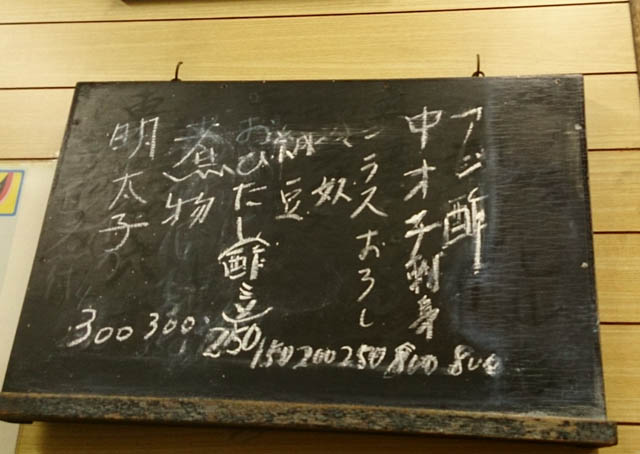 アジ酢 800
中オチ刺身 800
シラスおろし 250
奴 200
納豆 150
おひたし(酢ミソ) 250
煮物 300
明太子 300